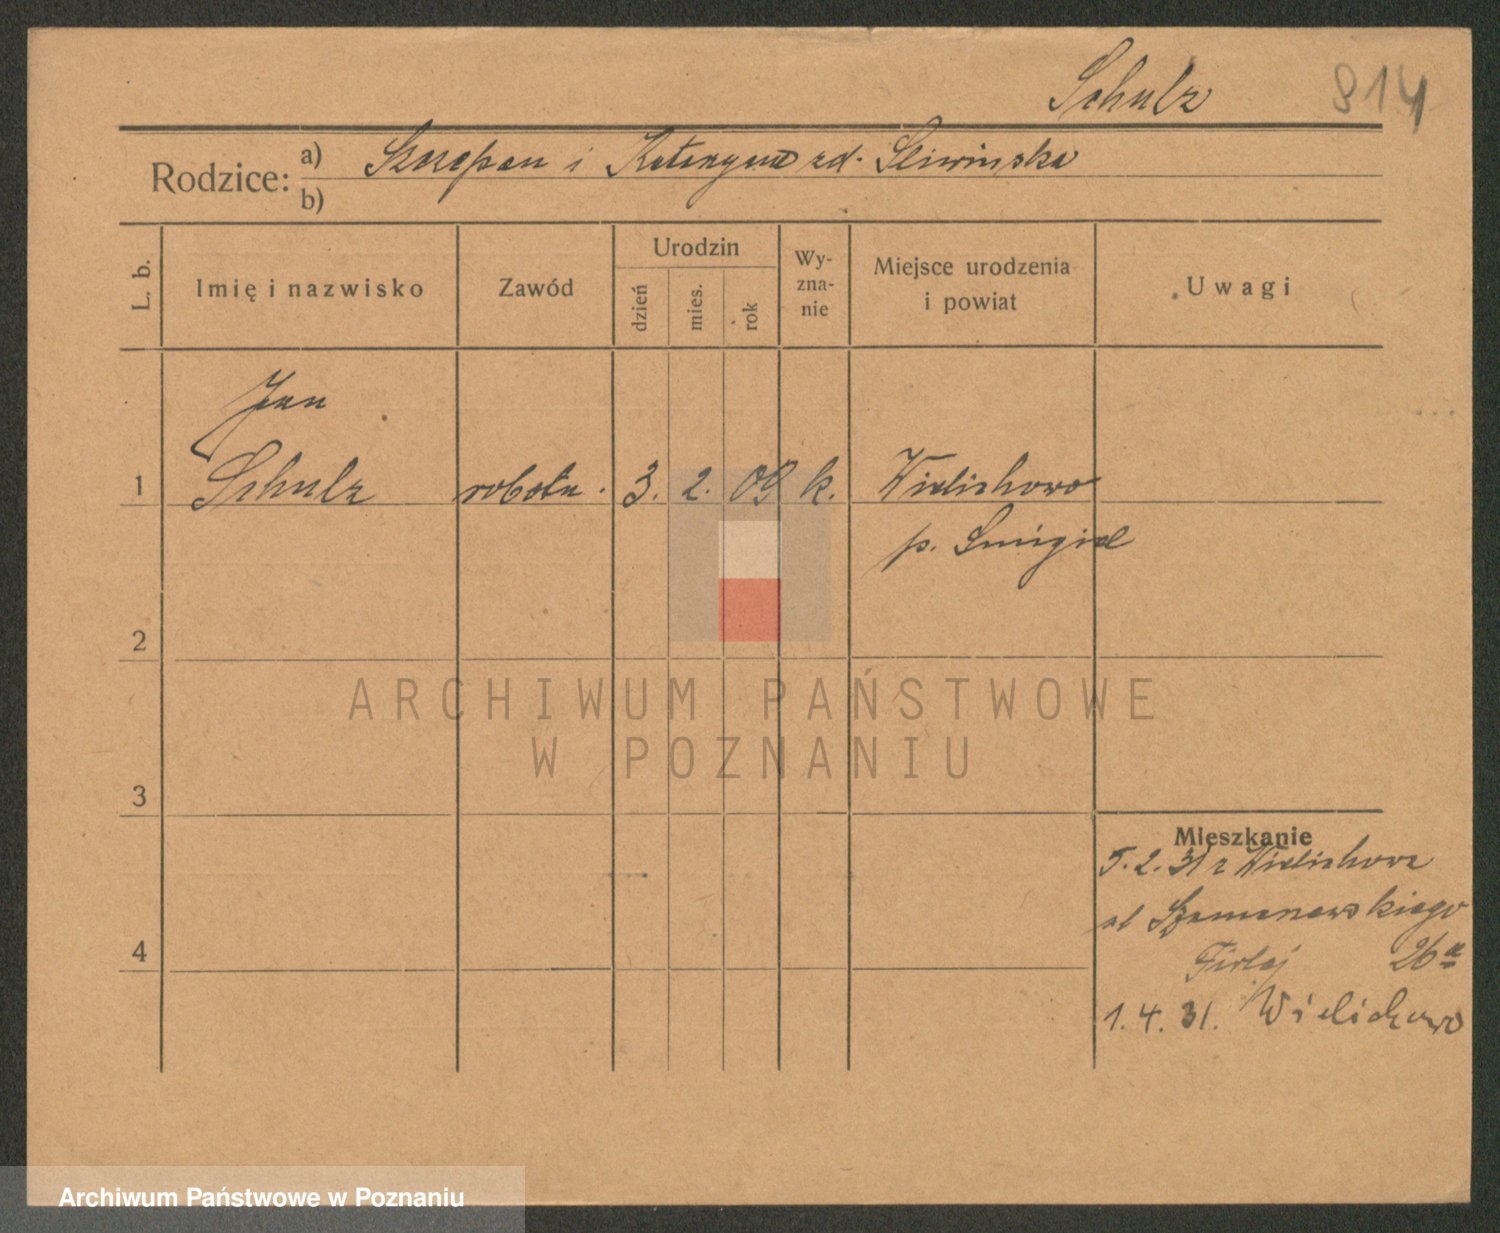 Schulz 814
Rodzice: a) Szczepan i Katarzyna zd. Śliwińska
b)
L. b.
Imię i nazwisko
Zawód
Urodzin
dzień
mies.
rok
Wy-
zna-
nie
Miejsce urodzenia
i powiat
Uwagi
Jan
1 Schulz robotn. 3. 2. 09 k. Wielichowo
p. Śmigiel
2
3
4
Mieszkanie
5.2.31 z Wielichowa
ul Szamarzewskiego
26a
1.4.31. Wielichowo
ARCHIWUM PAŃSTWOWE
W POZNANIU
Archiwum Państwowe w Poznaniu